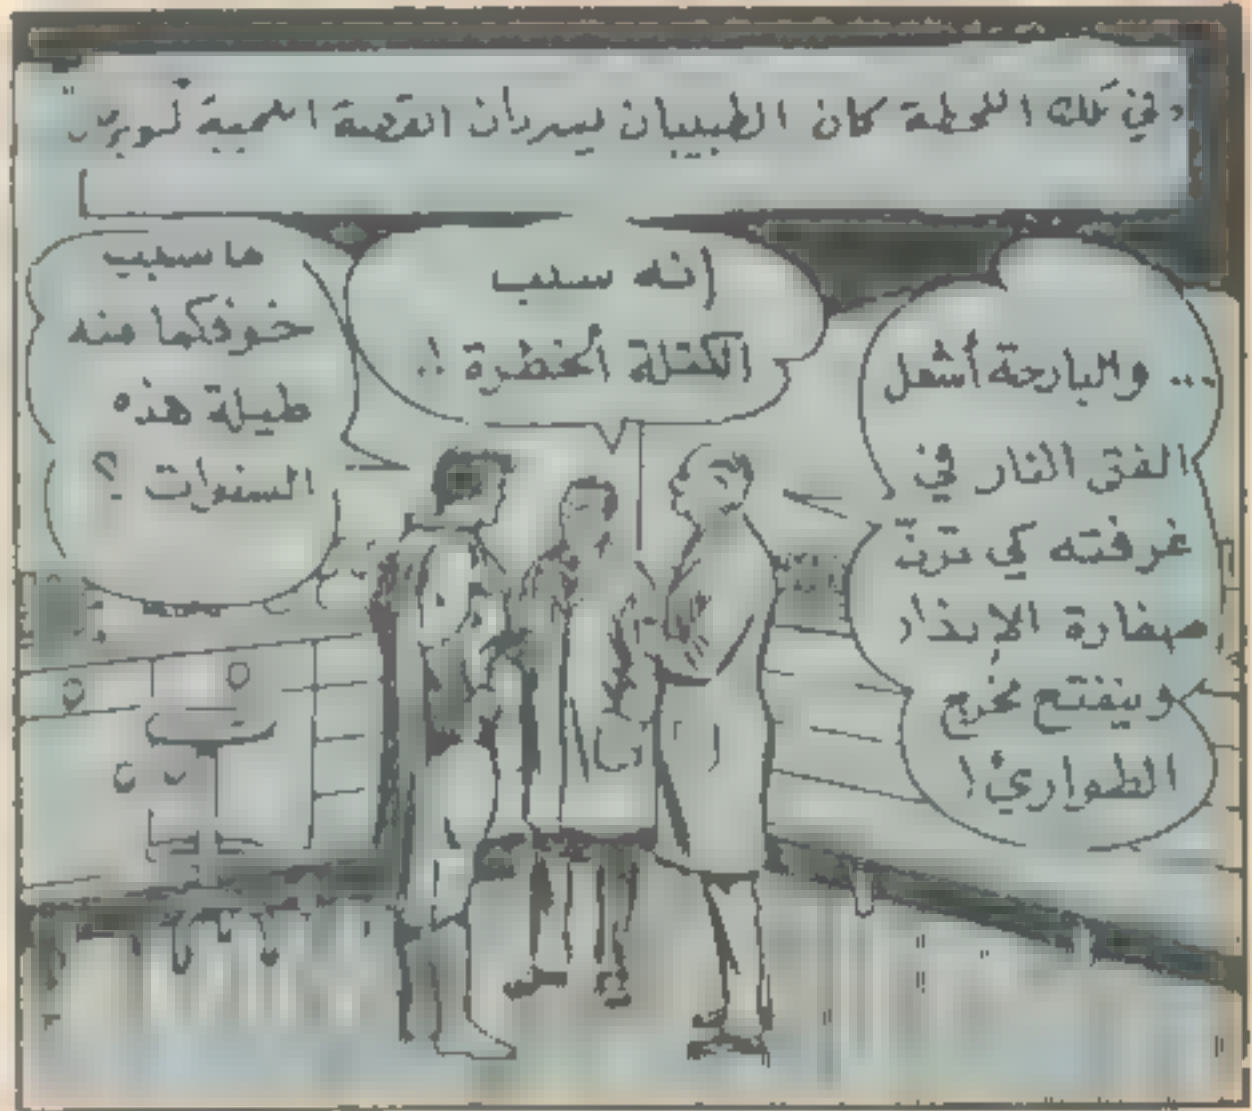 وفي تلك اللحظة كان الطبيبان يسردان القصة العجيبة لسوبرمان
... والبارحة أشعل
الفتى النار في
غرفته كي ترنّ
صفارة الإنذار
وينفتح مخرج
الطوارئ!
إنه سبب
الكتلة الخضرة !.
ما سبب
خوفكما منه
طيلة هذه
السنوات ؟